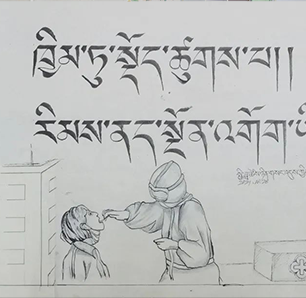 ཁྱིམ་དུ་སྡོད་ཚུགས་པ།།
རིམས་ནད་སྔོན་འགོག་ཡི